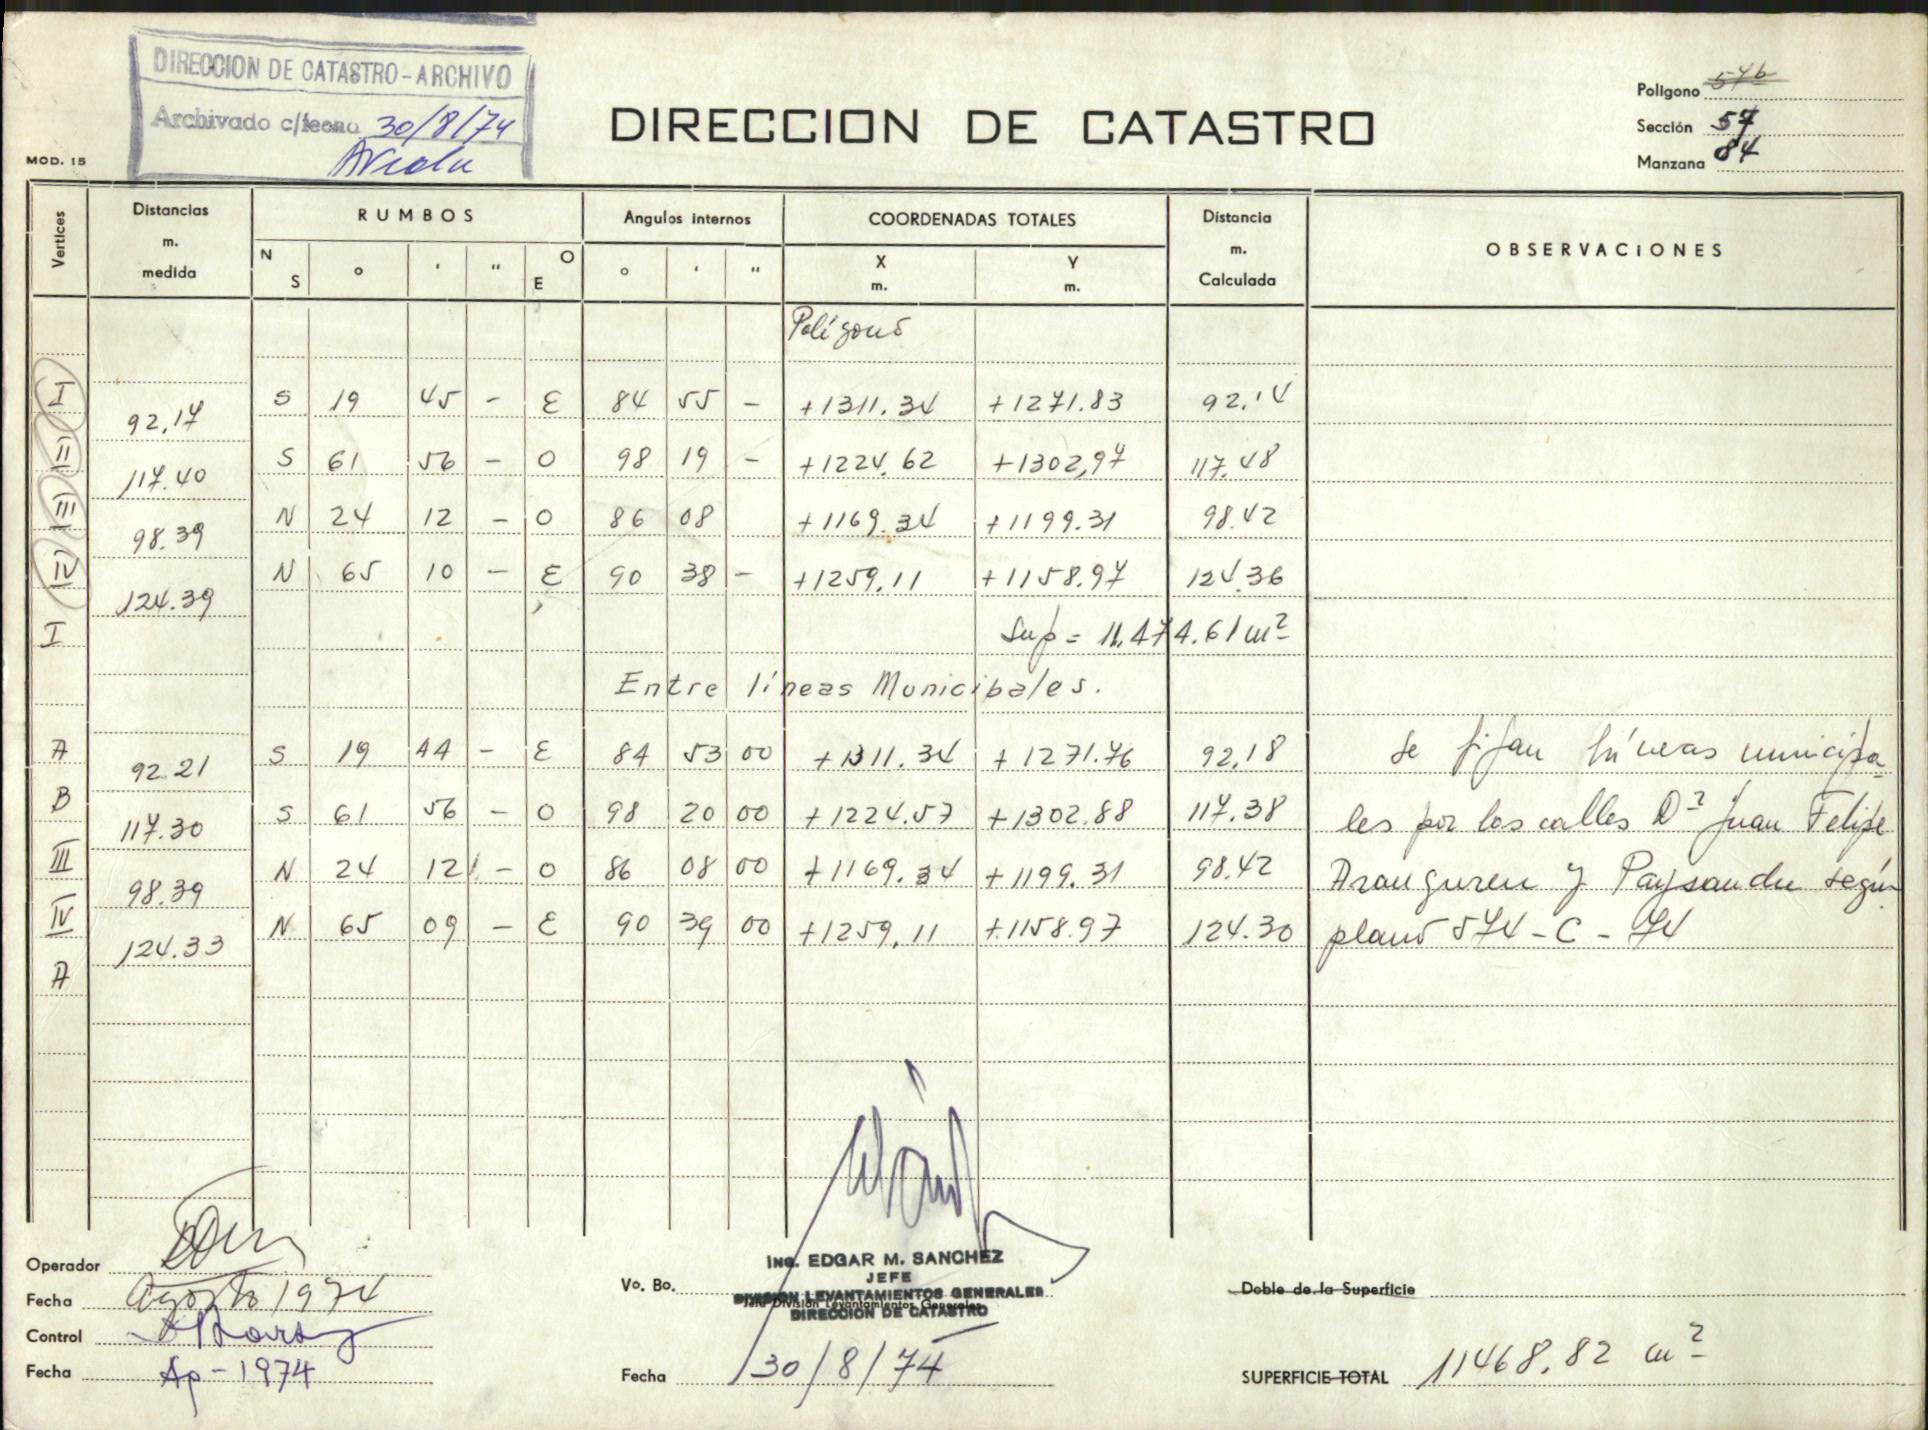 DIRECCION DE CATASTRO-ARCHIVO
Archivado c/fecha 30/8/74
MOD. 15
DIRECCION DE CATASTRO
Polígono 576
Sección 57
Manzana 84
Vertices
Distancias m. medida
RUMBOS
N S ° ' " O E
Angulos internos
° ' "
COORDENADAS TOTALES
X m. Y m.
Distancia m. Calculada
OBSERVACIONES
Polígono
I 92,17 S 19 45 - E 84 55 - +1311.34 +1271.83 92,14
II 117.40 S 61 56 - O 98 19 - +1224.62 +1302,97 117.48
III 98.39 N 24 12 - O 86 08 +1169.34 +1199.31 98.42
IV 124.39 N 65 10 - E 90 38 - +1259,11 +1158.97 124.36
I
Sup = 11.474.61 m²
Entre líneas Municipales.
A 92.21 S 19 44 - E 84 53 00 +1311.34 +1271.76 92,18
B 117.30 S 61 56 - O 98 20 00 +1224.57 +1302.88 117.38
III 98.39 N 24 12 - O 86 08 00 +1169.34 +1199.31 98.42
IV 124.33 N 65 09 - E 90 39 00 +1259,11 +1158.97 124.30
A
Se fijan líneas municipa-
les por las calles Dr Juan Felipe
Aranguren y Paysandu según
plano 574-C-74
Operador
Fecha Agosto 1974
Control
Fecha Ag-1974
Vo. Bo.
Ing. EDGAR M. SANCHEZ
JEFE
DIVISION LEVANTAMIENTOS GENERALES
Jefe División Levantamientos Generales
DIRECCION DE CATASTRO
Fecha 30/8/74
Doble de la Superficie
SUPERFICIE TOTAL 11468.82 m²